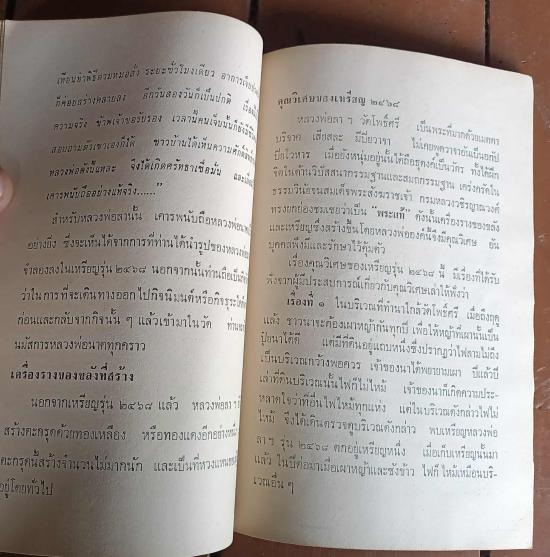 เทียนทำพิธีตามหมอลำ ระยะชั่วโมงเดียว อาการเจ็บ
ก็ค่อยสร่างคลายลง อีกวันสองวันก็เป็นปกติ
ความจริง ข้าพเจ้าขอรับรอง เวลานี้คนเจ็บนั้นก็ยัง
สอบถามตัวเขาเองก็ได้ ชาวบ้านได้เห็นความศักดิ์
หลวงพ่อดังนี้แหละ จึงได้เกิดศรัทธาเชื่อมั่น
เคารพนับถืออย่างแท้จริง......”
สำหรับหลวงพ่อลานั้น เคารพนับถือหลวงพ่อ
อย่างยิ่ง ซึ่งจะเห็นได้จากการที่ท่านได้นำรูปของหลวงพ่อ
จำลองลงในเหรียญรุ่น ๒๔๖๘ นอกจากนั้นท่านถือเป็น
ว่าในการที่จะเดินทางออกไปกิจนิมนต์หรือกิจธุระใด
ก่อนและกลับจากกิจนั้น ๆ แล้วเข้ามาในวัด
นมัสการหลวงพ่อนาคทุกคราว
เครื่องรางของขลังที่สร้าง
นอกจากเหรียญรุ่น ๒๔๖๘ แล้ว หลวงพ่อลา ฯ
สร้างตะกรุดด้วยทองเหลือง หรือทองแดงอีกอย่าง
ตะกรุดนี้สร้างจำนวนไม่มากนัก และเป็นที่หวงแหน
อยู่โดยทั่วไป
คุณวิเศษของเหรียญ ๒๔๖๘
หลวงพ่อลา ฯ วัดโพธิ์ศรี เป็นพระที่มากด้วยเมตตา
บริจาค เสียสละ มีปิยวาจา ไม่เคยพูดวาจาอันเป็นอกุปิ
ปิยโวหาร เมื่อยังหนุ่มอยู่นั้นได้ถือธุดงค์เป็นวัตร ทั้งได้ฝึก
จิตในด้านวิปัสสนากรรมฐานและสมถกรรมฐาน เคร่งครัดใน
ธรรมวินัยจนสมเด็จพระสังฆราชเจ้า กรมหลวงวชิรญาณวงศ์
ทรงยกย่องชมเชยว่าเป็น “พระแท้” ดังนั้นเครื่องรางของขลัง
และเหรียญซึ่งสร้างขึ้นโดยหลวงพ่อองค์นี้จึงมีคุณวิเศษ อัน
บุคคลพึงมีและรักษาไว้คุ้มตัว
เรื่องคุณวิเศษของเหรียญรุ่น ๒๔๖๘ นี้ มีเรื่องที่ได้รับ
ฟังจากผู้มีประสบการณ์เกี่ยวกับคุณวิเศษเล่าให้ฟังว่า
เรื่องที่ ๑ ในบริเวณที่ทำนาใกล้วัดโพธิ์ศรี เมื่อถึงฤดู
แล้ง ชาวนาจะต้องเผาหญ้ากันทุกปี เพื่อให้หญ้าที่เผานั้นเป็น
ปุ๋ยนาได้ดี แต่มีที่ดินอยู่แถบหนึ่งซึ่งปรากฏว่าไฟลามไม่ถึง
เป็นบริเวณกว้างพอควร เจ้าของนาได้พยายามเผา ปีแล้วปี
เล่าที่ดินบริเวณนั้นไฟก็ไม่ไหม้ เจ้าของนาก็เกิดความประ-
หลาดใจว่าที่อื่นไฟไหม้ทุกแห่ง แต่ในบริเวณดังกล่าวไฟไม่
ไหม้ จึงได้เดินตรวจดูบริเวณดังกล่าว พบเหรียญหลวงพ่อ
ลา ฯ รุ่น ๒๔๖๘ ตกอยู่เหรียญหนึ่ง เมื่อเก็บเหรียญนั้นมา
แล้ว ในปีต่อมาเมื่อเผาหญ้าและซังข้าว ไฟก็ไหม้เหมือนบริ-
เวณอื่น ๆ